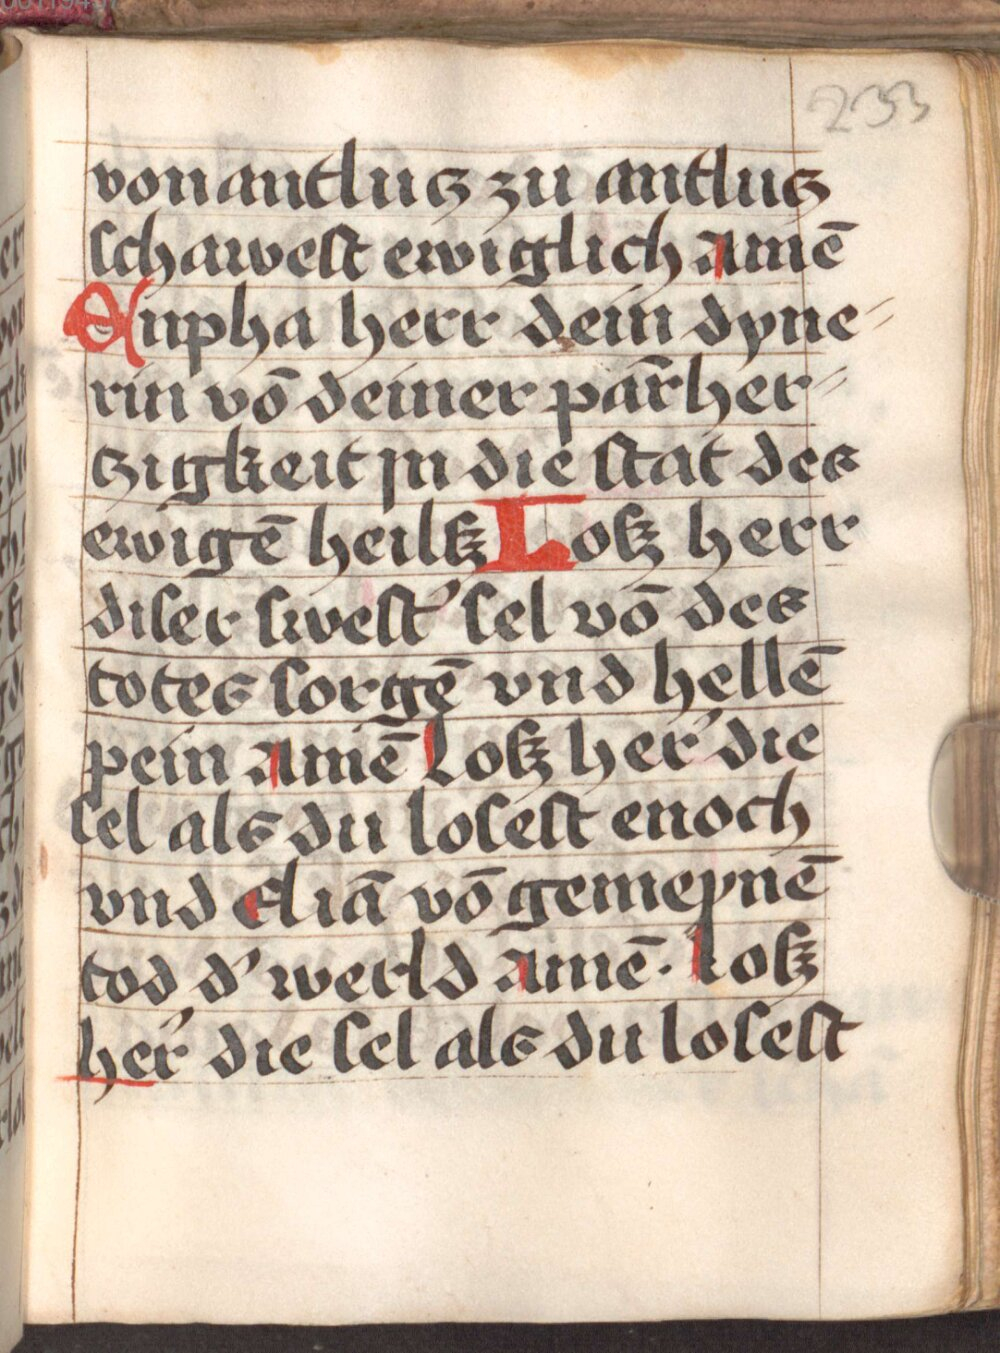 233
von antlucz zu antlucz
schawest ewiglich amē
Enpha herr dein dyne-
rin vō deiner parm̄her-
czigkeit jn die stat des
ewigē heilß Loß herr
diser swest' sel vō des
totes sorgē vnd hellē
pein amē Loß her' die
sel als du losest enoch
vnd eliā vō gemeynē
tod d' werld amē. Loß
her' die sel als du losest